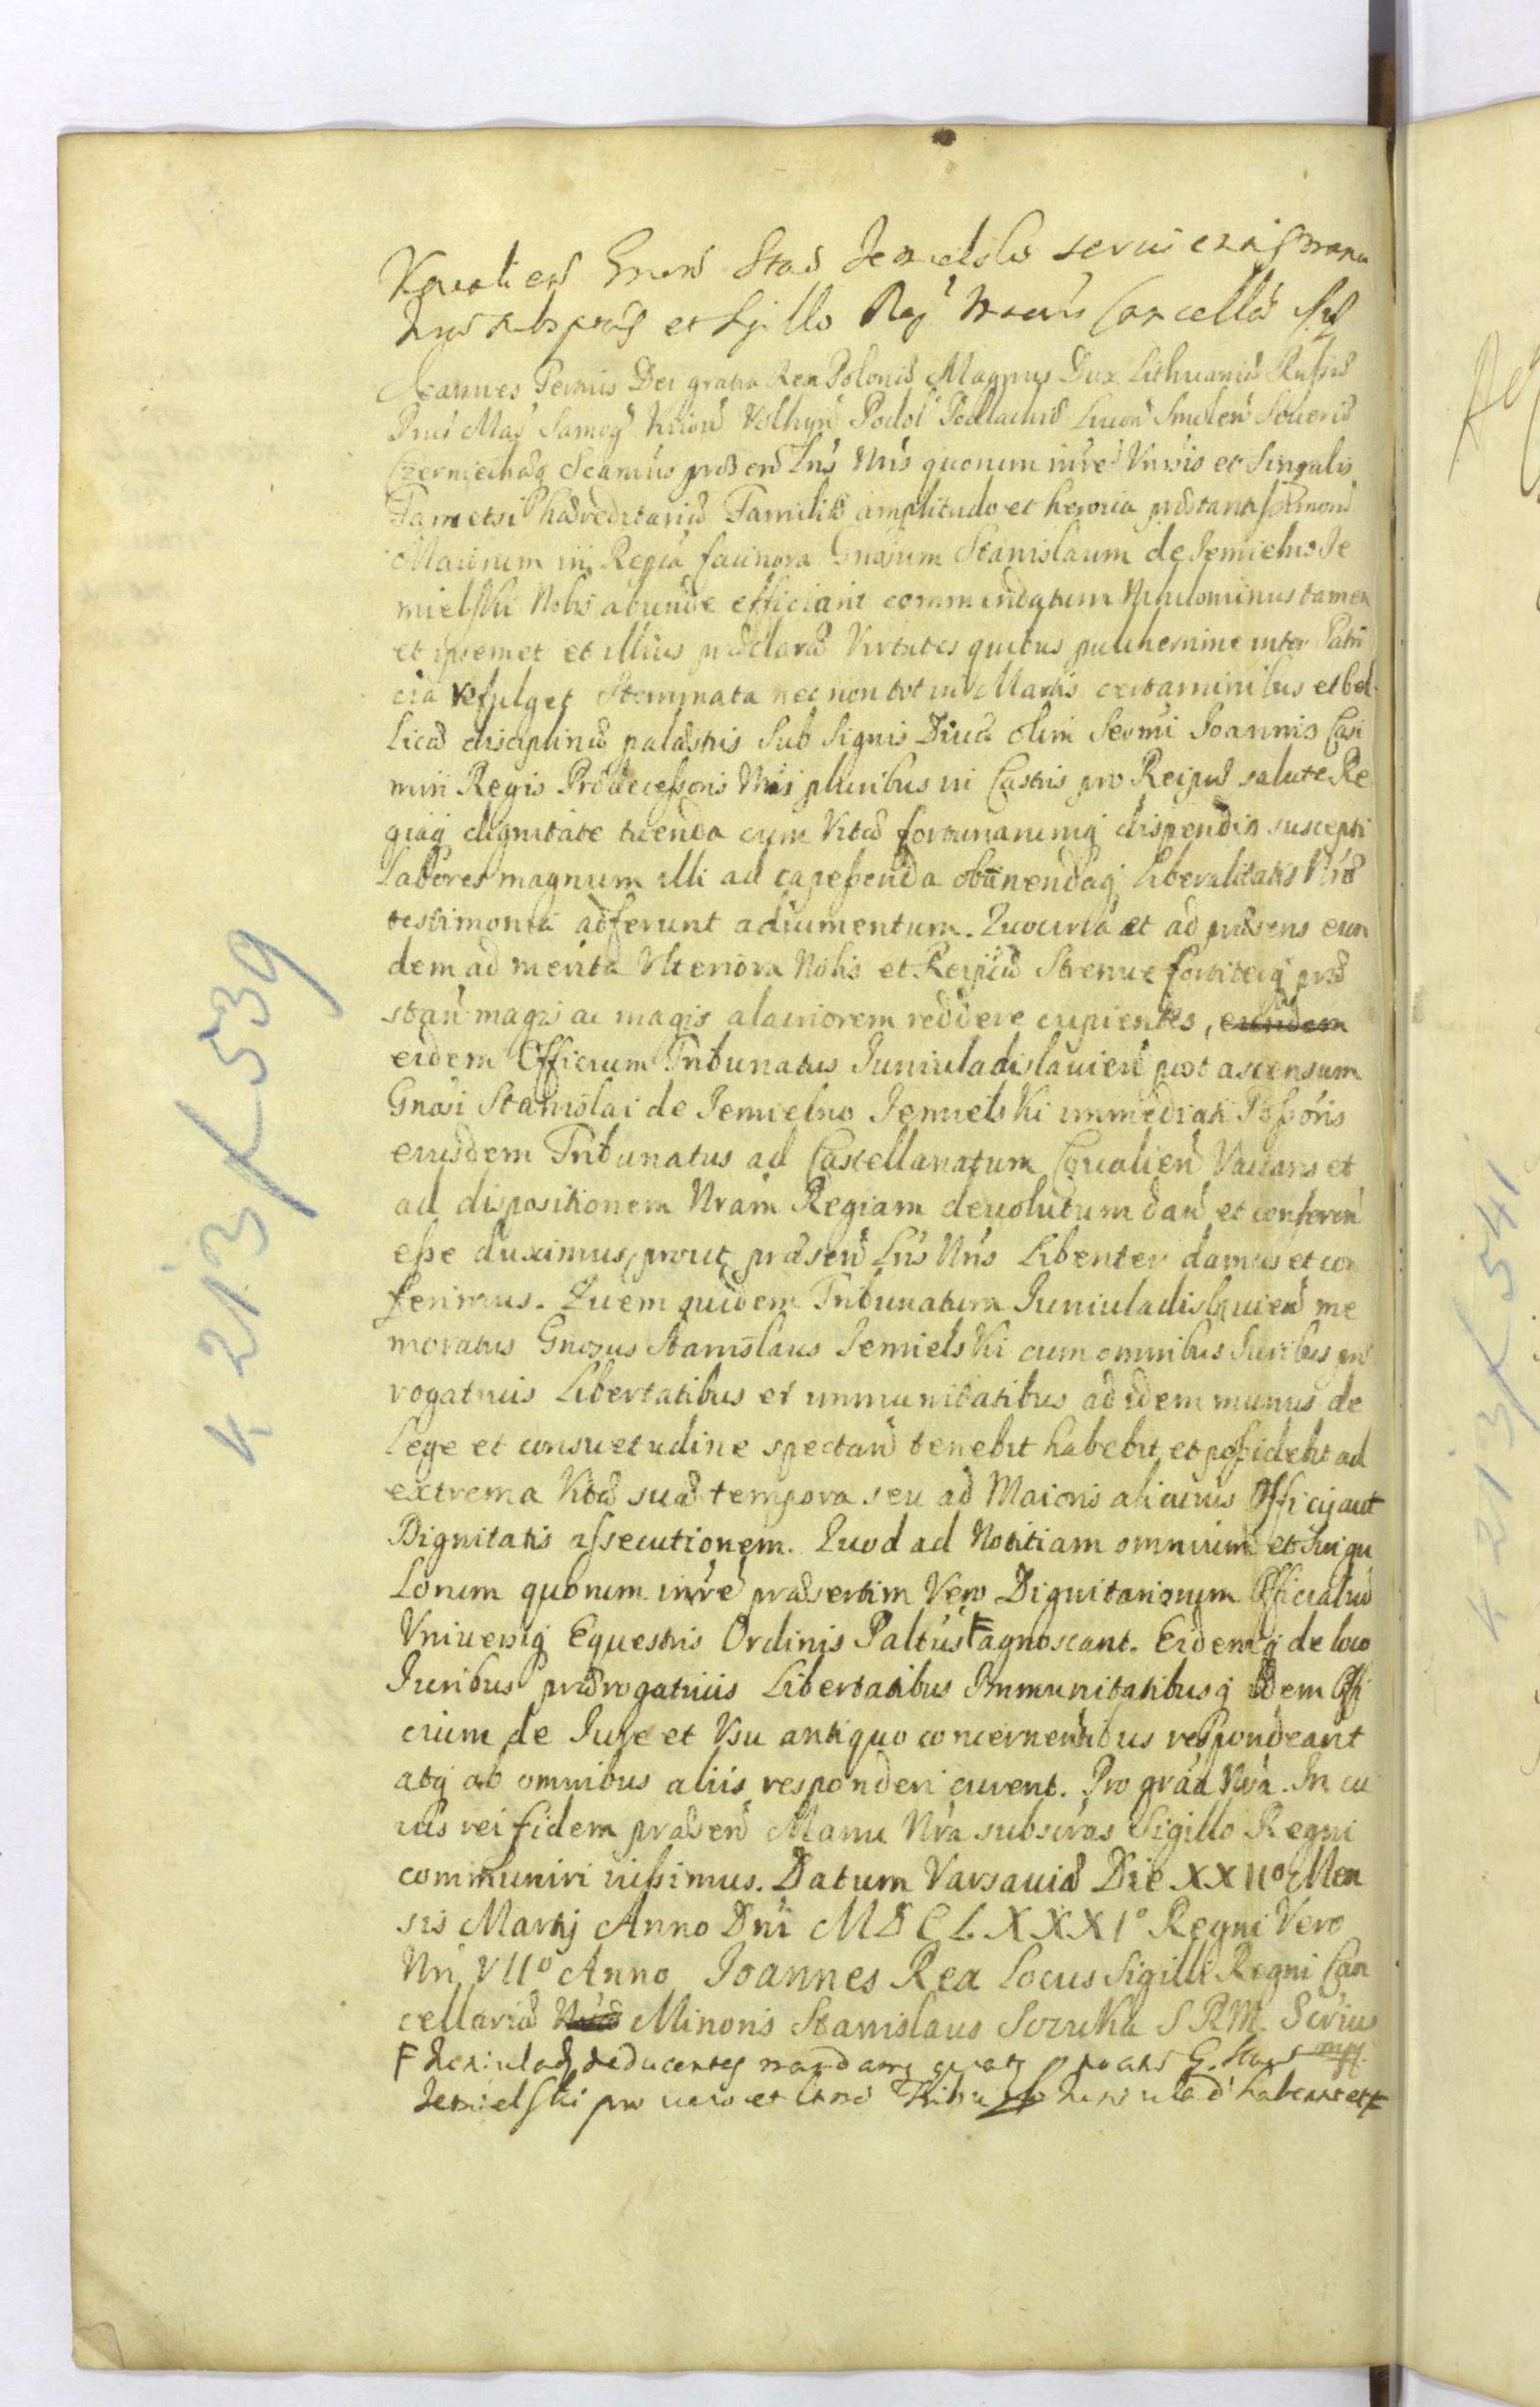 et Sigillo
Joannes Tertius Dei gratia Rex Poloniæ Magnus Dux Lithuaniæ Russiæ
Prus Mas Samog Kiiou Volhyn Podol Podlachiæ Liuon Smolen Seueriæ
Czerniechouq Scamus præsen Lris Nris quorum intre Vnisis et Singulis
Tametsi hæreditariæ Familiæ amplitudo et heroica præstant
Maiorum in Regia facinora Gnosum Stanislaum de Jemielno Je
mielski Nobis abunde efficiant commendatum Nihilominus tamen
et ipsemet et illius præclaræ Virtutes quibus pulcherrime inter Patri
cia refulget Stemmata nec non tot in Martis certaminibus et bel
licæ disciplinæ palæstris Sub Signis Diui olim Sermi Joannis Casi
miri Regis Prædecessoris Nri pluribus in Castris pro Reipub salute Re
giaq dignitate tuenda cum Vitæ fortunarumq dispendio suscepti
Labores magnum illi ad capessenda obtinendaq Liberalitatis Nræ
testimonia adferunt adiumentum. Quocirca et ad præsens eun
dem ad merita Vlteriora Nobis et Reipub Strenue fortiterq præ
stan magis ac magis alacriorem reddere cupientes, eundem
eidem Officium Tribunatus Juniuladislauien post ascensum
Gnosi Stanislai de Jemielno Jemielski immediati Possoris
eiusdem Tribunatus ad Castellanatum Coualien Vacans et
ad dispositionem Nram Regiam deuolutum dan et conferen
esse duximus, prout præsen Lris Nris Libenter damus et con
ferimus. Quem quidem Tribunatum Juniuladislauien me
moratus Gnosus Stanislaus Jemielski cum omnibus Juribus præ
rogatiuis Libertatibus et immunitatibus ad idem munus de
Lege et consuetudine spectan tenebit habebit et possidebit ad
extrema Vitæ suæ tempora seu ad Maioris alicuius Officij aut
Dignitatis assecutionem. Quod ad Notitiam omnium et Singu
lorum quorum intre præsertim Vero Dignitariorum Officialiu
Vniuersiq Equestris Ordinis Paltus F agnoscant. Eidemq de loco
Juribus prærogatiuis Libertatibus Immunitatibusq idem Offi
cium de Jure et Vsu antiquo concernentibus respondeant
atq ab omnibus aliis responderi curent. Pro gra Nra. In cu
ius rei fidem præsen Manu Nra subscras Sigillo Regni
communiri iussimus. Datum Varsauiæ Die XXIIº Men
sis Martij Anno Dni MDCLXXXIº Regni Vero
Nri VIIº Anno Joannes Rex Locus Sigilli Regni Can
cellariæ Minoris Stanislaus Szczuka S R M. Scrius
F deducentes mandamus
Jemielski pro uero et habeant et F
K 213 f 539
K 213 f 541